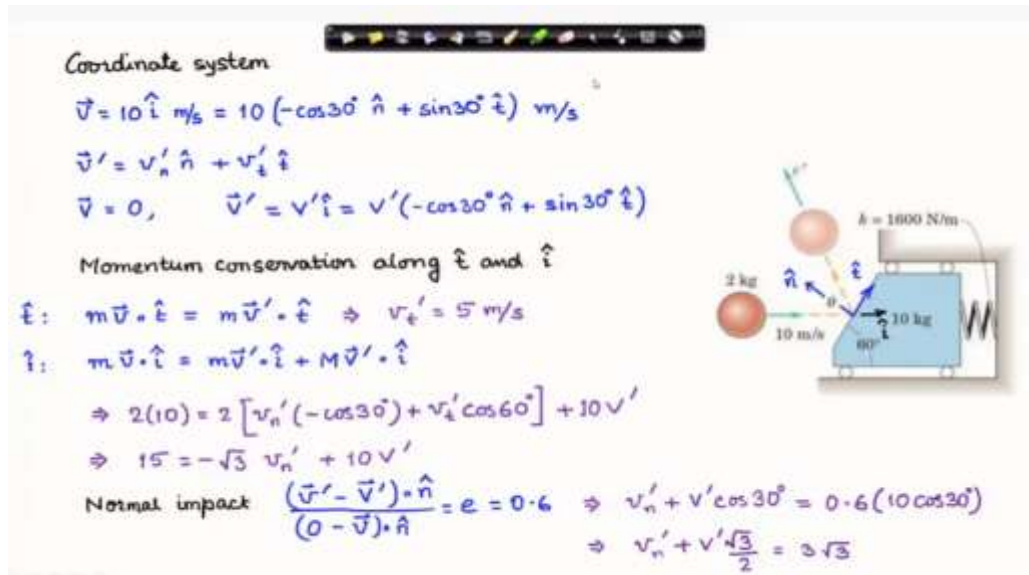 Coordinate system
v⃗ = 10 î m/s = 10 (-cos30° n̂ + sin30° t̂) m/s
v⃗′ = vₙ′ n̂ + vₜ′ t̂
V⃗ = 0, V⃗′ = V′ î = V′(-cos30° n̂ + sin30° t̂)
Momentum conservation along t̂ and î
t̂: m v⃗ • t̂ = m v⃗′ • t̂ ⇒ vₜ′ = 5 m/s
î: m v⃗ • î = m v⃗′ • î + M V⃗′ • î
⇒ 2(10) = 2 [vₙ′(-cos30°) + vₜ′ cos60°] + 10 V′
⇒ 15 = -√3 vₙ′ + 10 V′
Normal impact (v⃗′ - V⃗′) • n̂ / (0 - v⃗) • n̂ = e = 0.6 ⇒ vₙ′ + V′ cos30° = 0.6 (10 cos30°)
⇒ vₙ′ + V′ √3/2 = 3√3
k = 1600 N/m
2 kg
n̂
t̂
θ
10 m/s
î
10 kg
60°